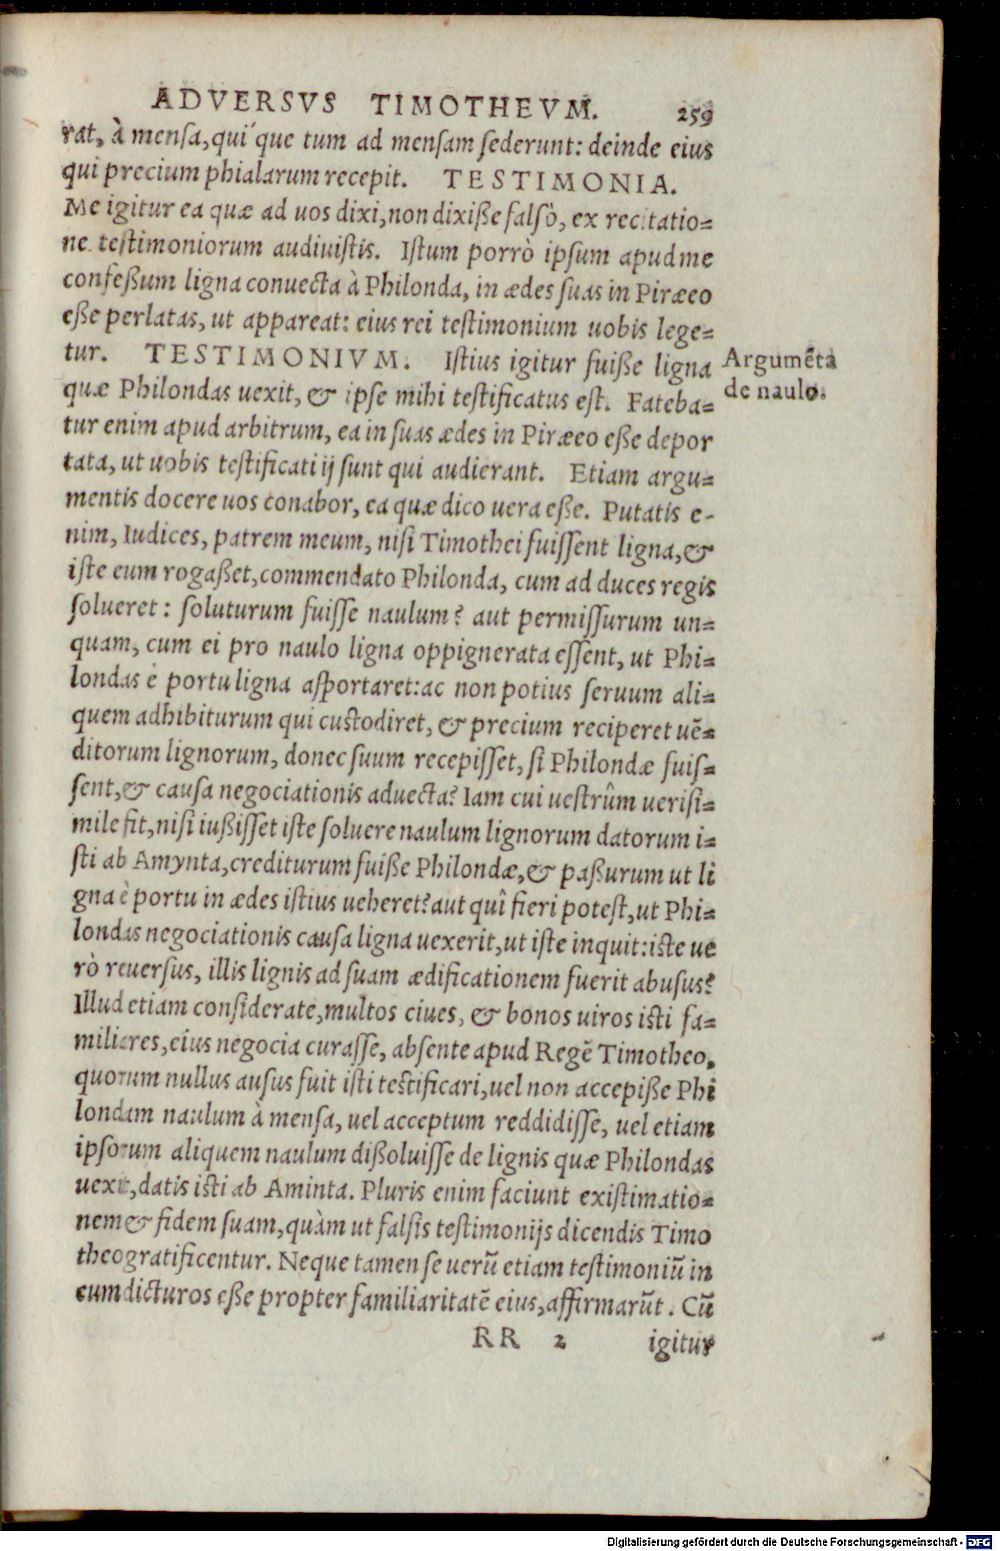 ADVERSVS TIMOTHEVM. 259
rat, à mensa, qui'que tum ad mensam sederunt: deinde eius
qui precium phialarum recepit. TESTIMONIA.
Me igitur ea quæ ad uos dixi, non dixiße falsò, ex recitatio=
ne testimoniorum audiuistis. Istum porrò ipsum apud me
confeßum ligna conuecta à Philonda, in ædes suas in Piræeo
eße perlatas, ut appareat: eius rei testimonium uobis lege=
tur. TESTIMONIVM. Istius igitur fuiße ligna
quæ Philondas uexit, & ipse mihi testificatus est. Fateba=
tur enim apud arbitrum, ea in suas ædes in Piræeo eße depor
tata, ut uobis testificati ij sunt qui audierant. Etiam argu=
mentis docere uos conabor, ea quæ dico uera eße. Putatis e-
nim, Iudices, patrem meum, nisi Timothei fuissent ligna, &
iste eum rogaßet, commendato Philonda, cum ad duces regis
solueret: soluturum fuisse naulum? aut permissurum un=
quam, cum ei pro naulo ligna oppignerata essent, ut Phi=
londas è portu ligna asportaret: ac non potius seruum ali=
quem adhibiturum qui custodiret, & precium reciperet uē=
ditorum lignorum, donec suum recepisset, si Philondæ fuis=
sent, & causa negociationis aduecta? Iam cui uestrûm uerisi=
mile fit, nisi iußisset iste soluere naulum lignorum datorum i=
sti ab Amynta, crediturum fuiße Philondæ, & paßurum ut li
gna è portu in ædes istius ueheret? aut quî fieri potest, ut Phi=
londas negociationis causa ligna uexerit, ut iste inquit: iste ue
rò reuersus, illis lignis ad suam ædificationem fuerit abusus?
Illud etiam considerate, multos ciues, & bonos uiros isti fa=
miliares, eius negocia curasse, absente apud Regē Timotheo,
quorum nullus ausus fuit isti testificari, uel non accepiße Phi
londam naulum à mensa, uel acceptum reddidisse, uel etiam
ipsorum aliquem naulum dißoluisse de lignis quæ Philondas
uexit, datis isti ab Aminta. Pluris enim faciunt existimatio=
nem & fidem suam, quàm ut falsis testimonijs dicendis Timo
theo gratificentur. Neque tamen se uerū etiam testimoniū in
eum dicturos eße propter familiaritatē eius, affirmarūt. Cū
RR 2 igitur
Argumēta
de naulo.
Digitalisierung gefördert durch die Deutsche Forschungsgemeinschaft - DFG